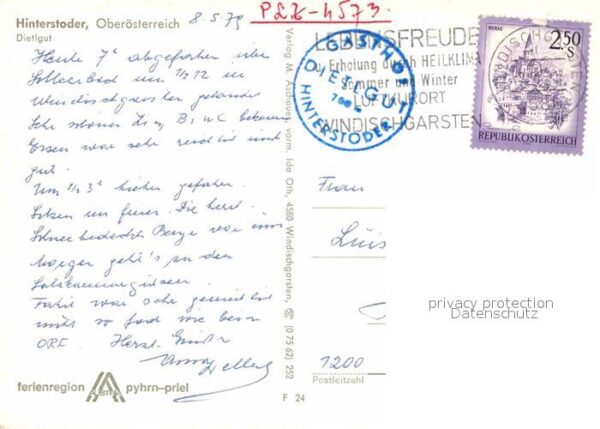 Hinterstoder, Oberösterreich
Dietlgut
8.5.79
PLZ-4573
Heute 7h abgefahren über
in
Windischgarsten gelandet
Sehr schönes Zi. m. B. u. WC bekommen
Essen war sehr reichlich und
gut.
Um 1/2 3h hieher gefahren.
Sitzen im Freien. Die herrl.
Schneebedeckte Berge vor uns
morgen geht's zu den
Fahrt war sehr gemütlich
nicht so wie beim
ORF. Herzl. Grüße
ferienregion
AUSTRIA
pyhrn-priel
Verlag M. Aschauer vorm. Ida Oth, 4580 Windischgarsten, (0 75 62) 252
F 24
GASTHOF
DIETLGUT
HINTERSTODER
LEBENSFREUDE
Erholung durch HEILKLIMA
Sommer und Winter
LUFTKURORT
WINDISCHGARSTEN
MURAU
2.50
S
REPUBLIK ÖSTERREICH
Frau
1200
Postleitzahl
privacy protection
Datenschutz